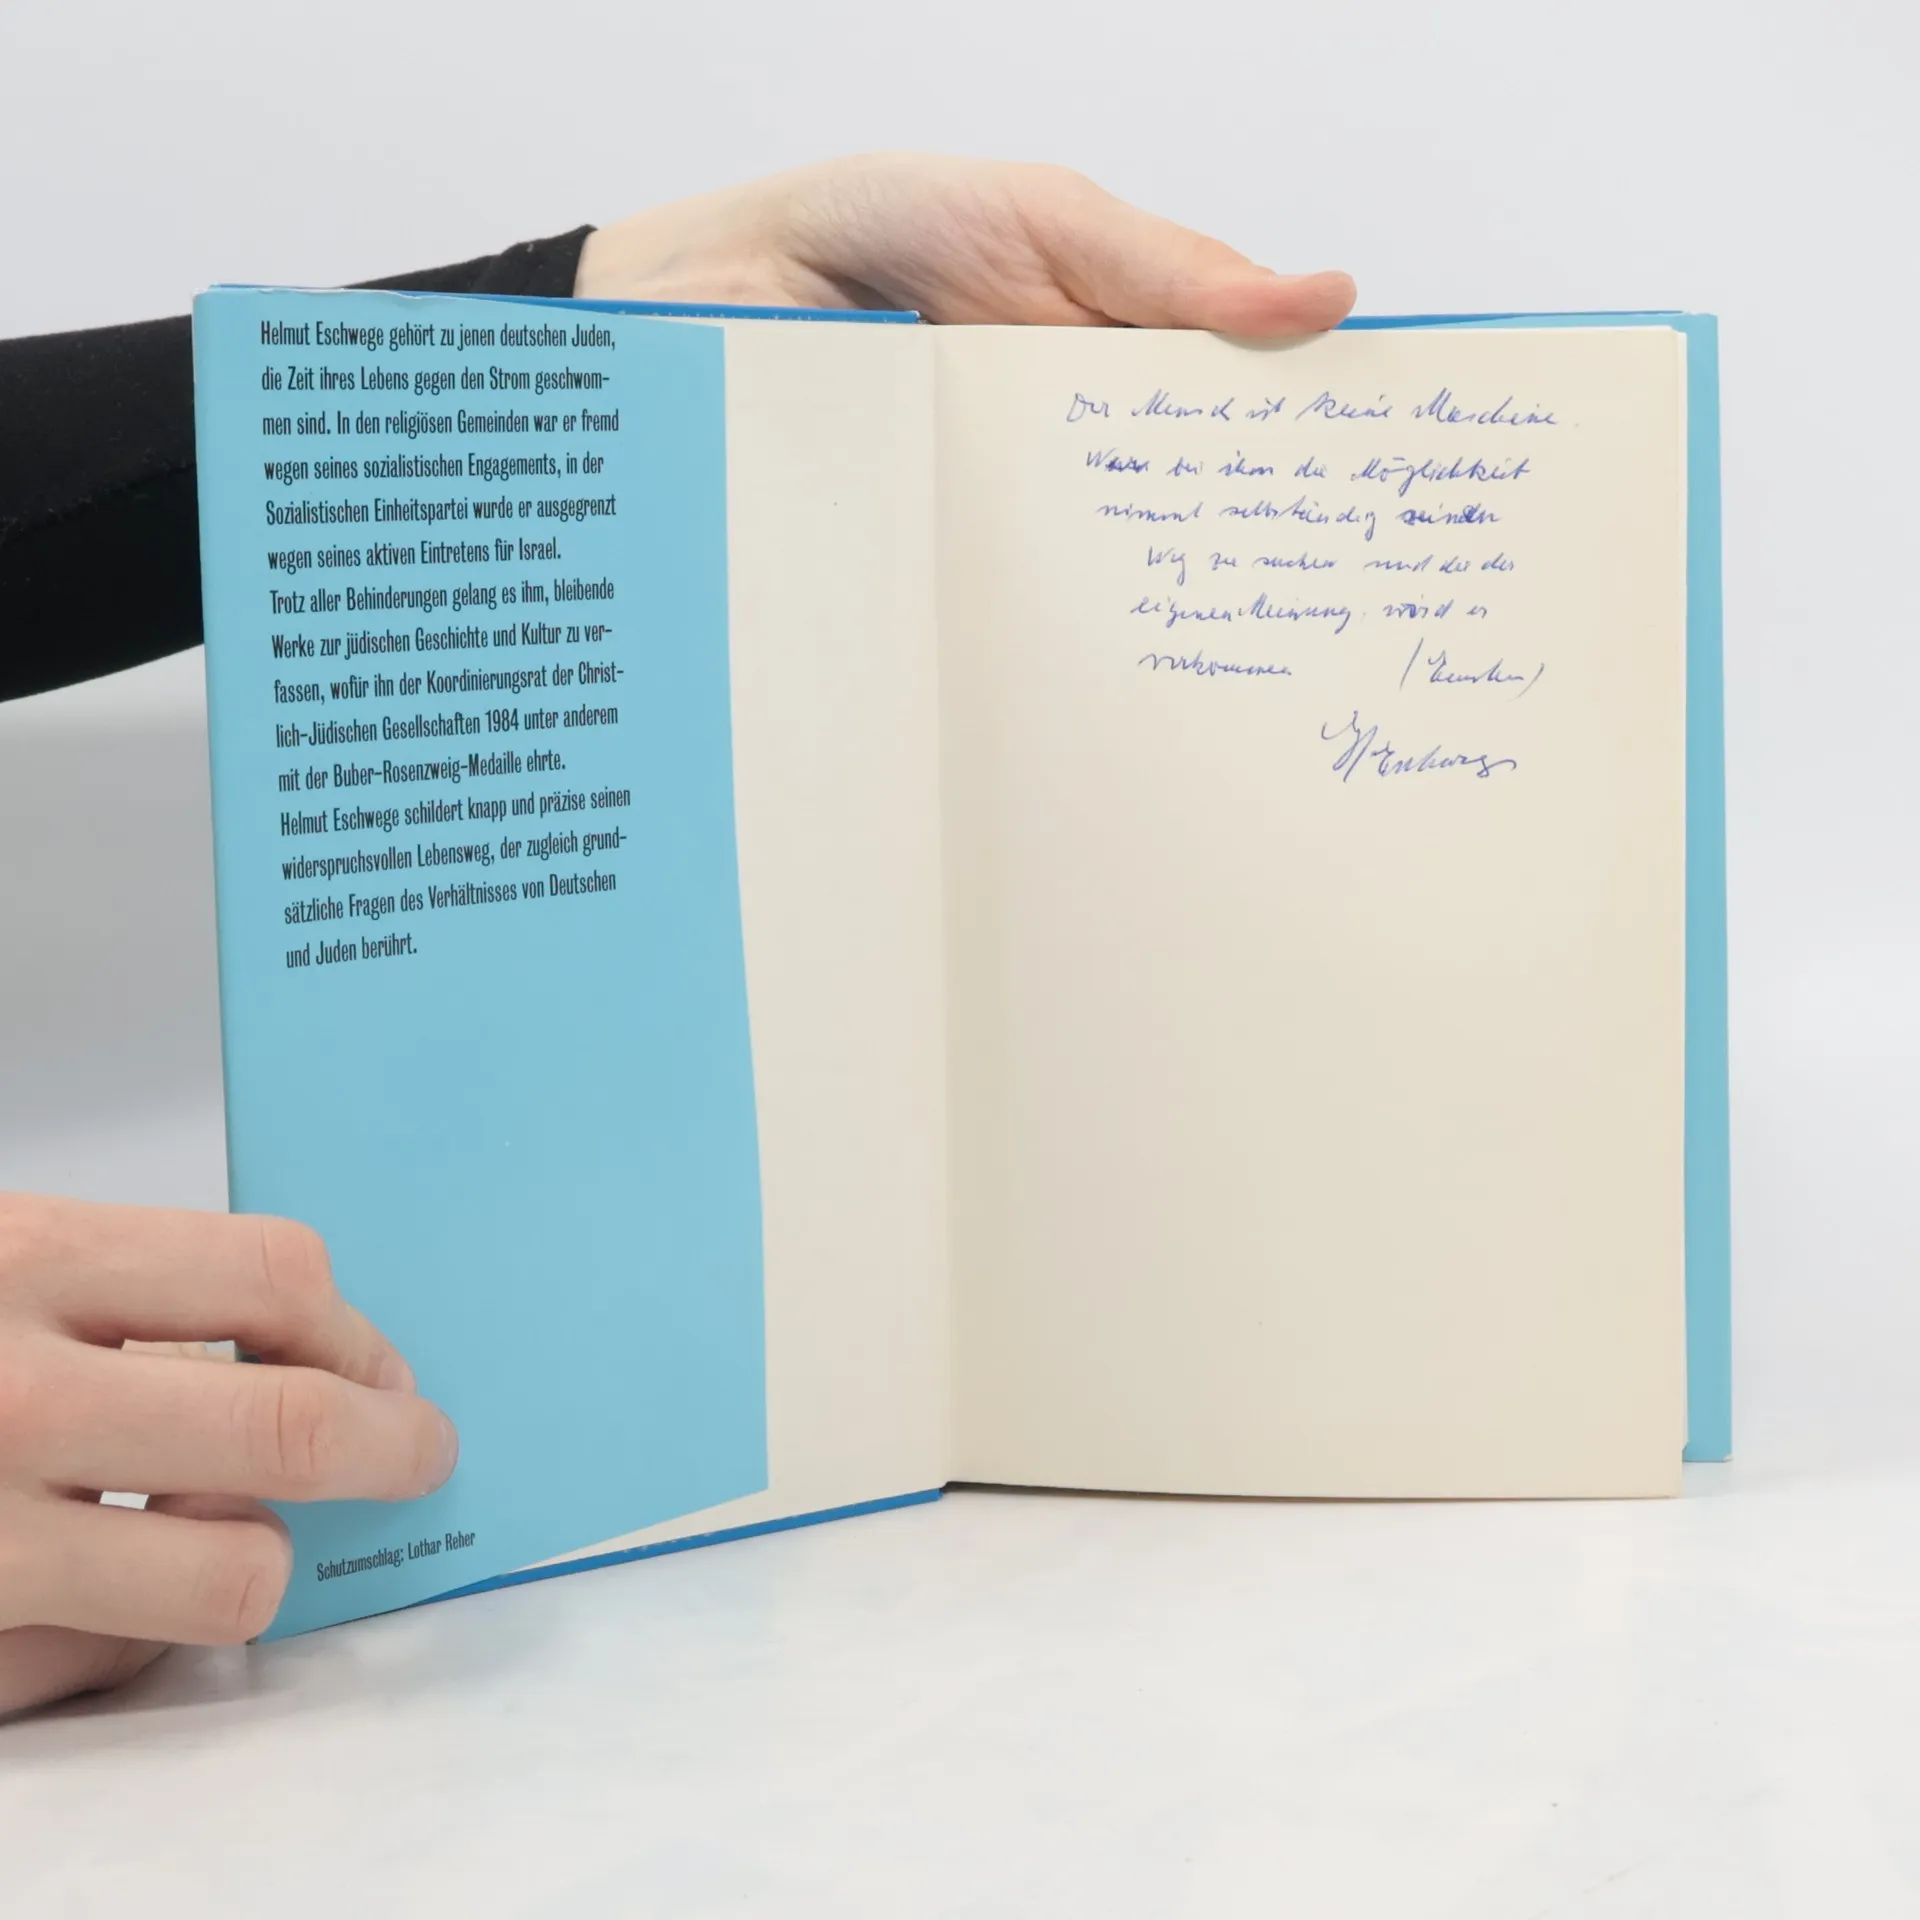 Helmut Eschwege gehört zu jenen deutschen Juden,
die Zeit ihres Lebens gegen den Strom geschwom-
men sind. In den religiösen Gemeinden war er fremd
wegen seines sozialistischen Engagements, in der
Sozialistischen Einheitspartei wurde er ausgegrenzt
wegen seines aktiven Eintretens für Israel.
Trotz aller Behinderungen gelang es ihm, bleibende
Werke zur jüdischen Geschichte und Kultur zu ver-
fassen, wofür ihn der Koordinierungsrat der Christ-
lich-Jüdischen Gesellschaften 1984 unter anderem
mit der Buber-Rosenzweig-Medaille ehrte.
Helmut Eschwege schildert knapp und präzise seinen
widerspruchsvollen Lebensweg, der zugleich grund-
sätzliche Fragen des Verhältnisses von Deutschen
und Juden berührt.
Schutzumschlag: Lothar Reher
Der Mensch ist keine Maschine.
bei ihm die Möglichkeit
nimmt selbständig seinen
Weg zu suchen und die der
eigenen Meinung, wird er
verkommen
H Eschwege